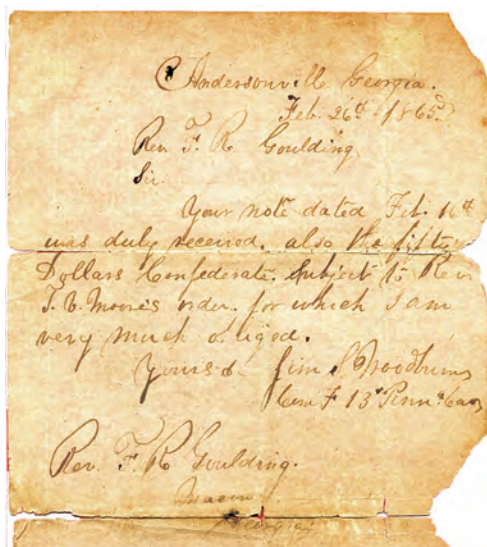 Andersonville Georgia.
Feb. 26th - 1865.
Rev. F. R. Goulding
Sir.
Your note dated Feb. 16th
was duly received. also the fifty
Dollars Confederate. Subject to Rev
T. V. Moore's order. for which I am
very much obliged.
Yours &c Jim S Woodburn
Com F 13th Penn Cav
Rev. F. R Goulding.
Macon
Georgia